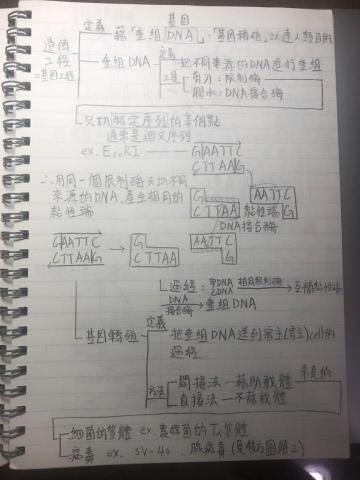 定義 基因
遺傳 藉「重組DNA」、「基因轉殖」以達人類目的
工程 重組DNA 定義 把不同來源的DNA進行重組
=基因工程 工具 剪刀:限制酶
膠水:DNA接合酶
只切特定序列的某個點
通常是迴文序列
ex. EcoRI G|AATTC
CTTAA|G
∴用同一個限制酶去切不同
來源的DNA,產生相同的
黏性端
G AATTC
CTTAA 黏性端 G
DNA接合酶
G|AATTC → G AATTC
CTTAA|G CTTAA G
過程:甲DNA 乙DNA 相同限制酶→互補黏性端
DNA接合酶→重組DNA
基因轉殖 定義 把重組DNA送到宿主(寄主)cell的
過程
方法 間接法—藉助載體 常見的
直接法—不藉載體
細菌的質體 ex. 農桿菌的Ti質體
病毒 ex. SV-40、腺病毒